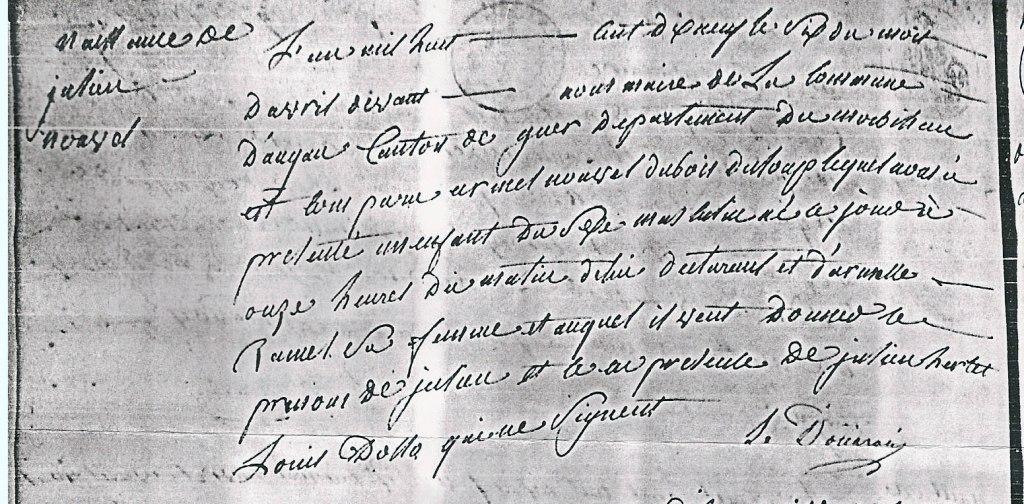 naissance de
julien
nouvel
L'an mil huit cent dix neuf le sept du mois
d'avril devant nous maire de La Commune
d'augan Canton de guer département du morbihan
est comparu armel nouvel du bois du loup lequel nous à
présenté un enfant du sexe masculin né ce jour à
onze heures du matin de lui déclarant et d'
Ramel sa femme et auquel il veut donner le
prénoms de julien et le en présence de julien
Louis Dollo qui ne signent
Le Douarain